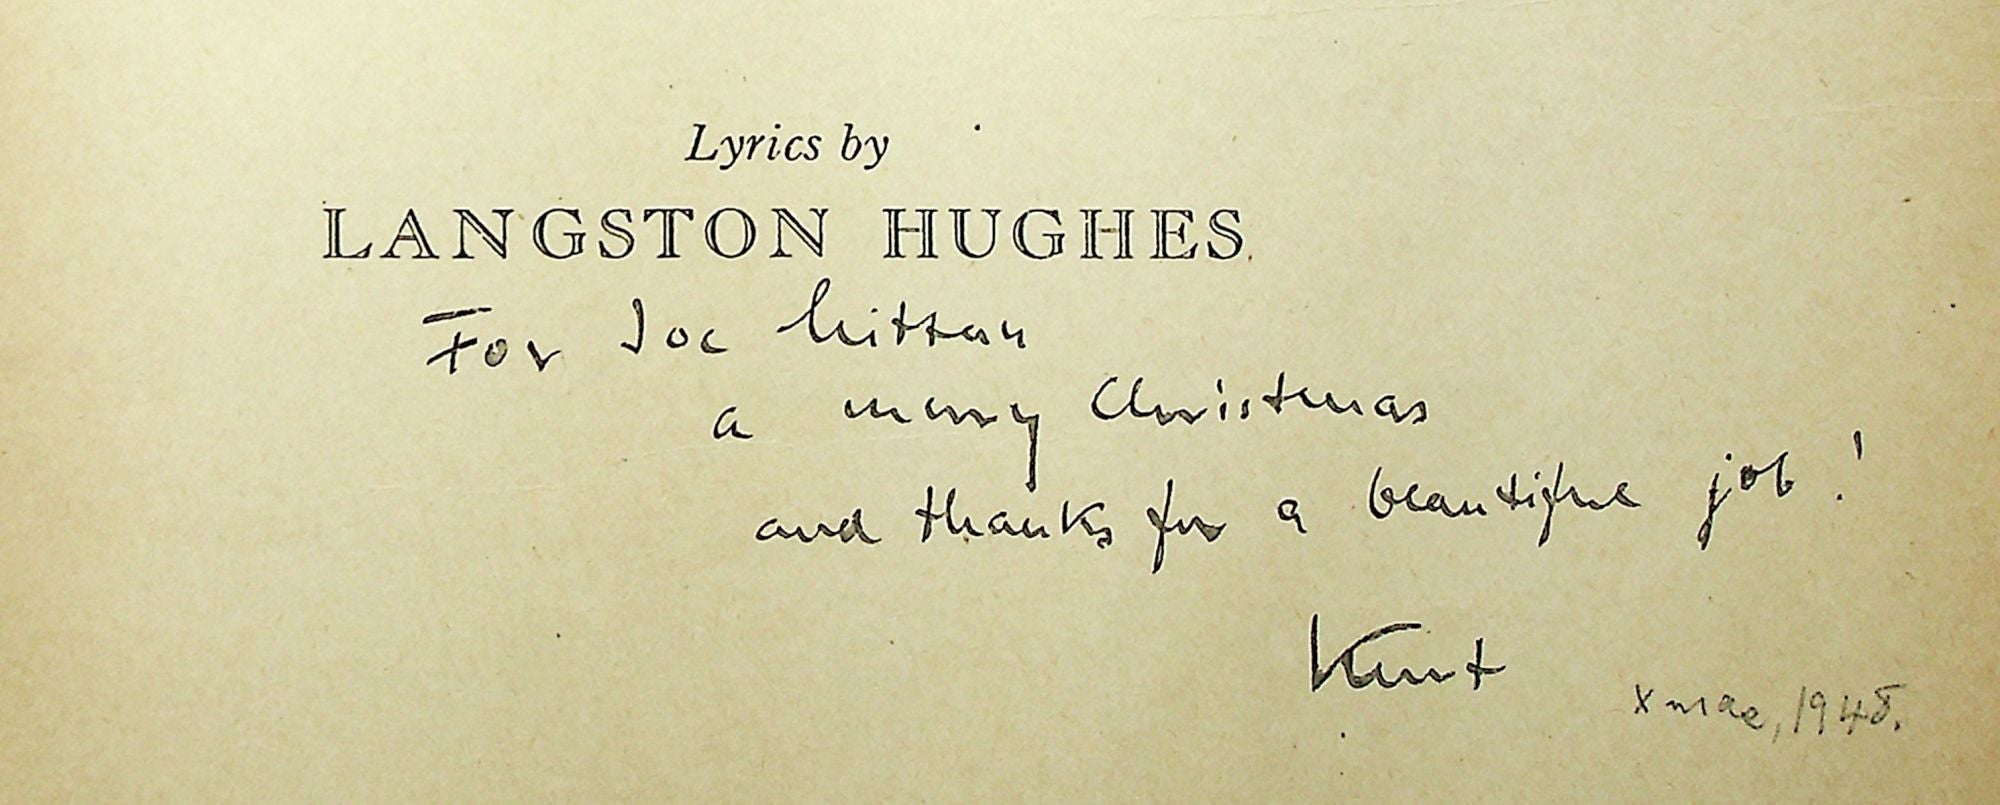 Lyrics by
LANGSTON HUGHES
For Joe Littau
a merry Christmas
and thanks for a beautiful job!
Kurt
Xmas, 1948.